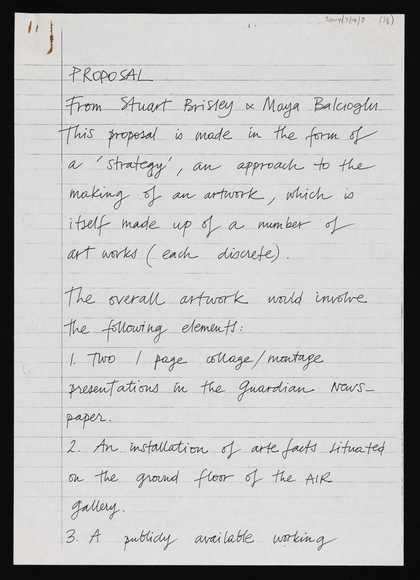 PROPOSAL
From Stuart Brisley & Maya Balcioglu
This proposal is made in the form of
a 'strategy', an approach to the
making of an artwork, which is
itself made up of a number of
art works (each discrete).
The overall artwork would involve
the following elements:
1. Two 1 page collage/montage
presentations in the Guardian News-
paper.
2. An installation of artefacts situated
on the ground floor of the AIR
gallery.
3. A publicly available working